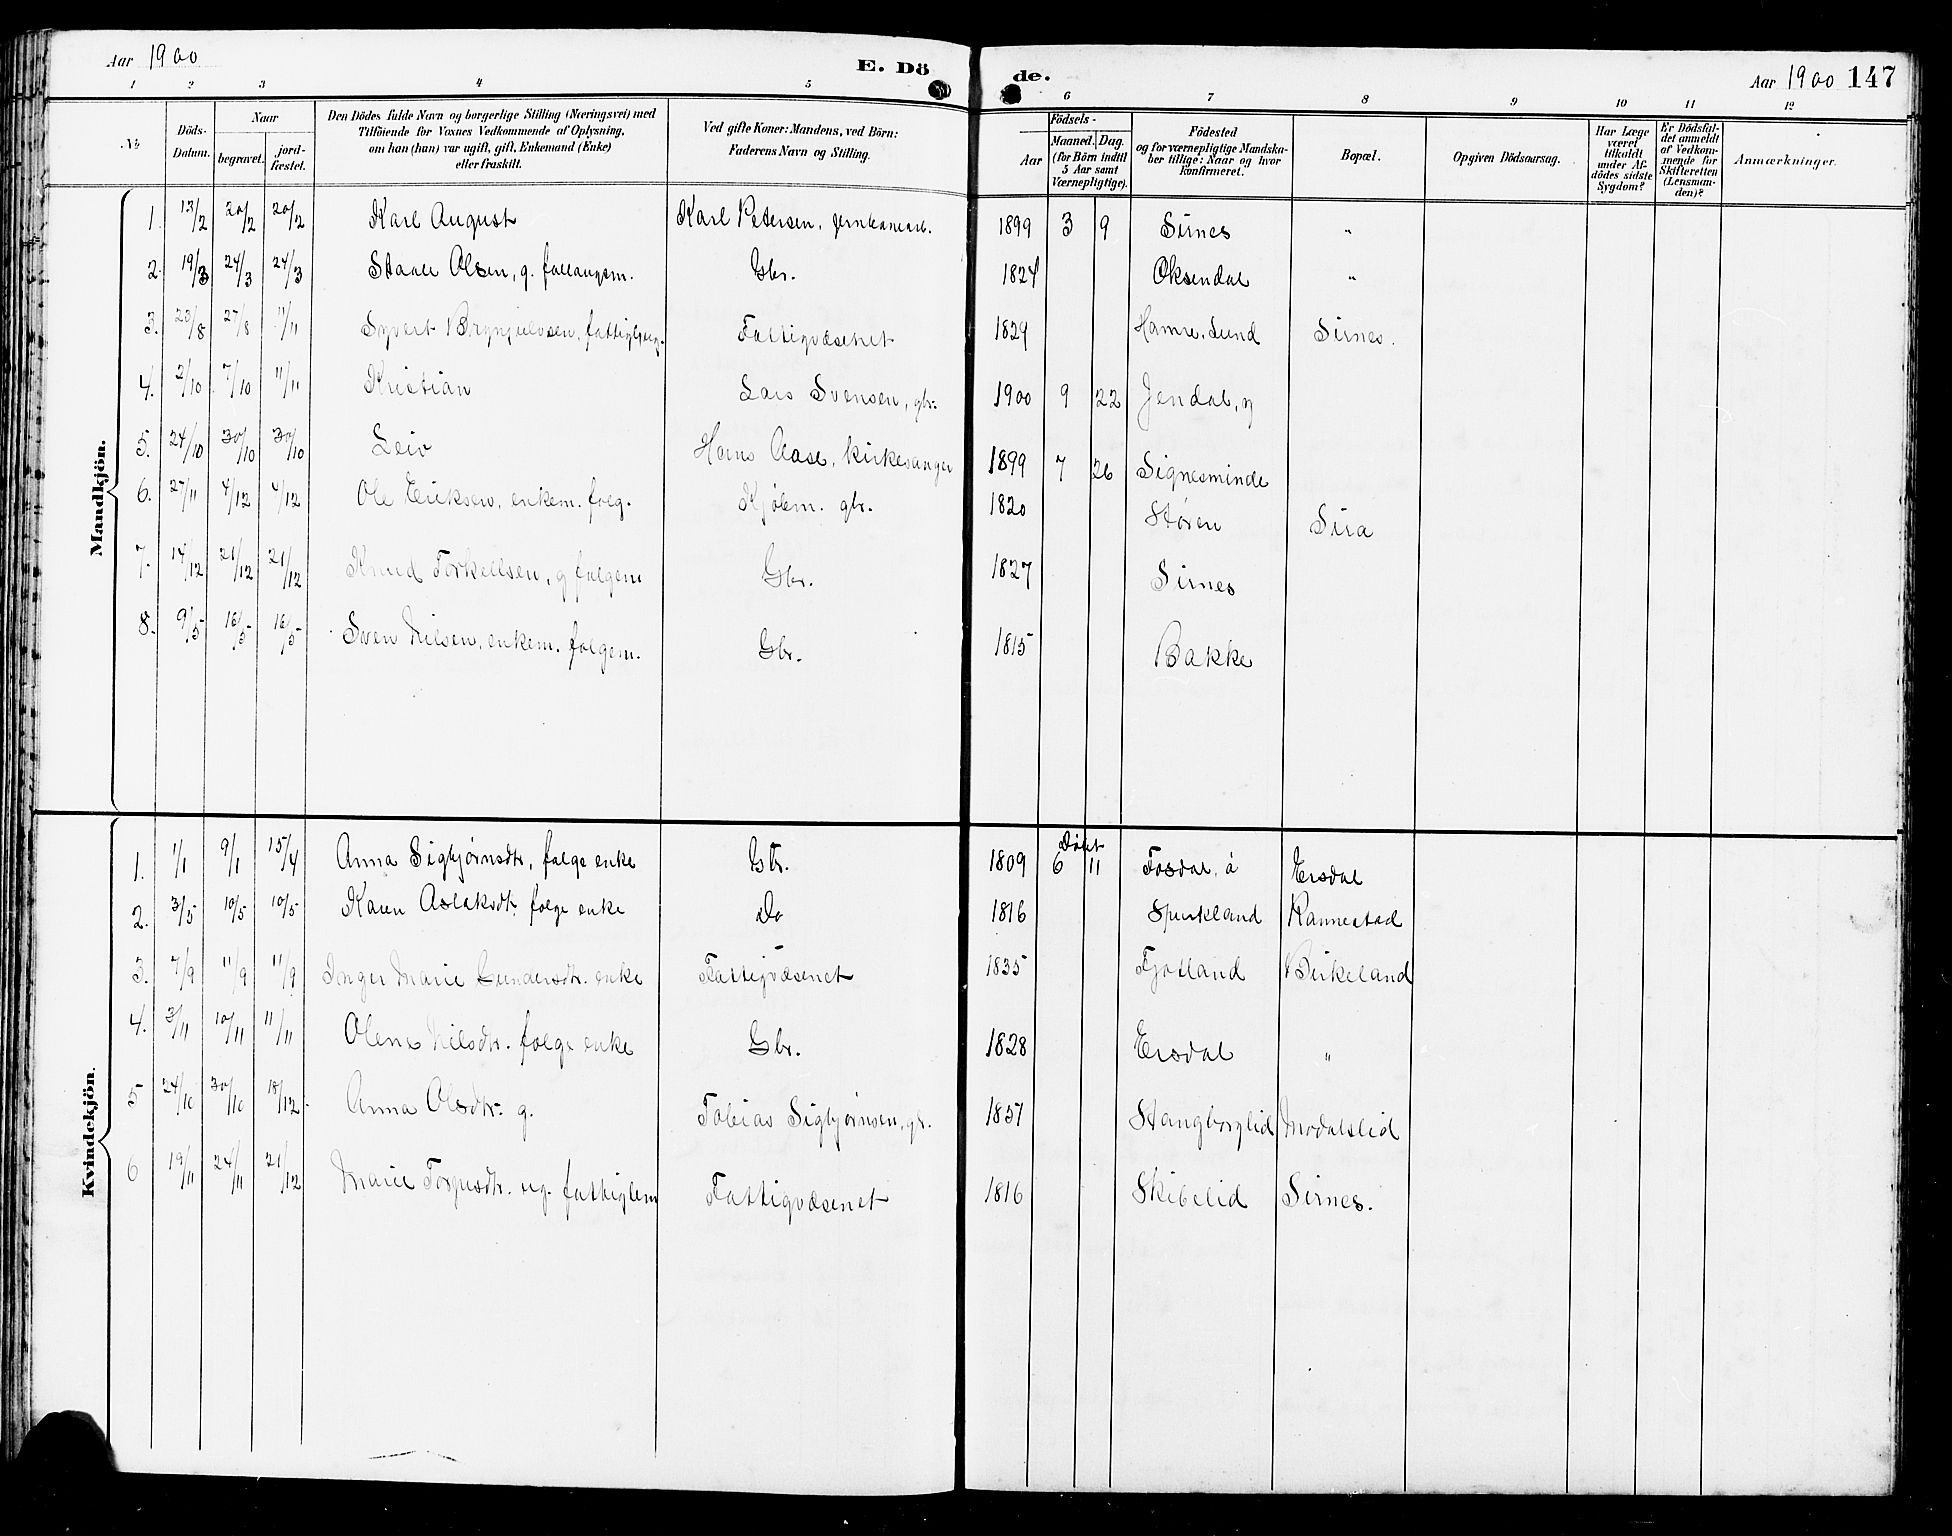 Aar 1900 E. Dö de. Aar 1900 147
1 2 3 4 5 6 7 8 9 10 11 12
No
Döds-Datum.
Naar
begravet.
jord-fæstet.
Den Dödes fulde Navn og borgerlige Stilling (Næringsvei) med
Tilföiende for Voxnes Vedkommende af Oplysning,
om han (hun) var ugift, gift, Enkemand (Enke)
eller fraskilt.
Ved gifte Koner: Mandens, ved Börn:
Faderens Navn og Stilling.
Födsels-
Aar
Maaned. Dag.
(for Börn indtil
5 Aar samt
Værnepligtige).
Födested
og for værnepligtige Mandska-
ber tillige: Naar og hvor
konfirmeret.
Bopæl.
Opgiven Dödsaarsag.
Har Læge
været
tilkaldt
under Af-
dödes sidste
Sygdom?
Er Dödsfal-
det anmeldt
af Vedkom-
mende for
Skifteretten
(Lensman-
den)?
Anmærkninger.
Mandkjön.
1. 13/2 20/2 20/2 Karl August Karl Petersen, jernbanearb. 1899 3 9 Sirnes "
2. 19/3 24/3 24/3 Staale Olsen, g. Gbr. 1824 Oksendal "
3. 20/8 27/8 11/11 Syvert Brynjulvsen, Fattigvæsenet 1829 Hamre, Lund Sirnes.
4. 2/10 7/10 11/11 Kristian Lars Svensen, gbr. 1900 9 22 Jendal, y
5. 24/10 30/10 30/10 Leiv Hans Aase, kirkesanger 1899 7 26 Signesminde
6. 27/11 4/12 4/12 Ole Eriksen, enkem. folg. Kjölem. gbr. 1820 Støren Sira
7. 14/12 21/12 21/12 Knud Torkellsen, g folgem Gbr. 1827 Sirnes
8. 9/5 16/5 16/5 Sven Nilsen, enkem. folgem. Gbr. 1815 Bakke
Kvindekjön.
1. 1/1 9/1 15/4 Anna Sigbjørnsdtr, folge enke Gbr. 1809 Döbt 6 11 Fosdal, å Ersdal
2. 3/5 10/5 10/5 Karen Aslaksdtr folge enke Do 1816 Spurkland Rannestad
3. 7/9 11/9 11/9 Inger Marie Gundersdtr. enke Fattigvæsenet 1835 Fjotland Birkeland
4. 3/11 10/11 11/11 Olene Nilsdtr. folge enke Gbr. 1828 Ersdal "
5 24/10 30/10 18/12 Anna Olsdtr. g. Tobias Sigbjørnsen, gbr. 1857 Stangborglid Modalslid
6 19/11 24/11 21/12 Marie Torjusdtr. ug. fattiglem Fattigvæsenet 1816 Skibelid Sirnes.